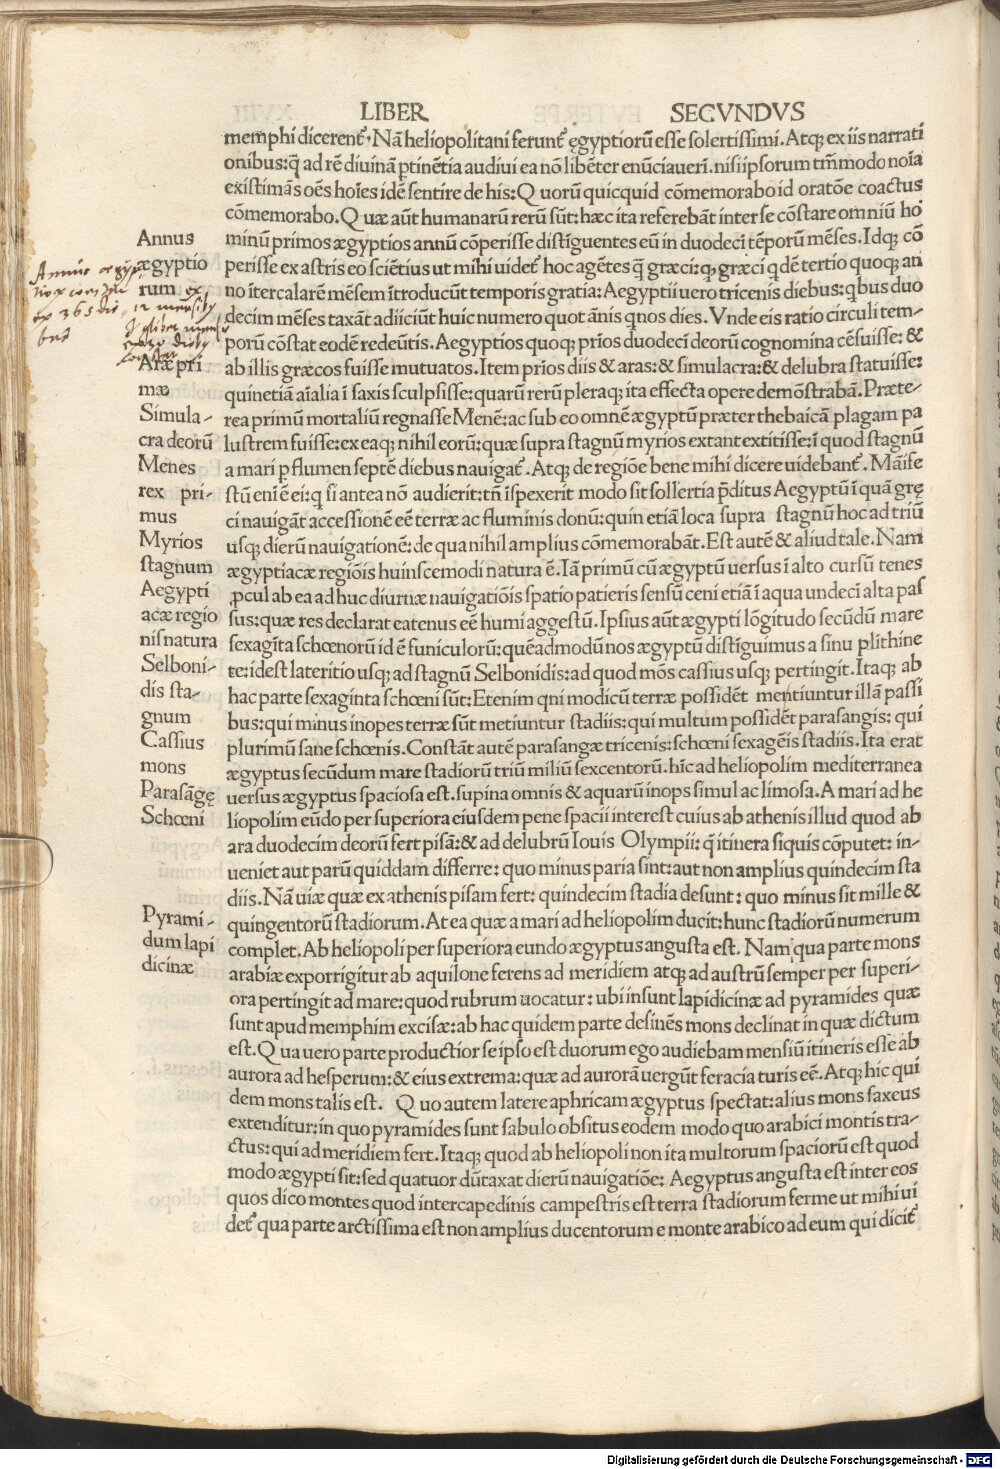 LIBER SECVNDVS
memphi dicerent᷑. Nã heliopolitani ferunt᷑ ęgyptiorũ esse solertissimi. Atq; ex iis narrati
onibus: q̃ ad rẽ diuinã ꝑtinẽtia audiui ea nõ libẽter enũciauerĩ. nisi ipsorum tm̃modo noĩa
existimãs oẽs hoĩes idẽ sentire de his: Quorũ quicquid cõmemorabo id oratõe coactus
cõmemorabo. Quæ aũt humanarũ rerũ sũt: hæc ita referebãt inter se cõstare omniũ ho
minũ primos ægyptios annũ cõperisse distĩguentes eũ in duodecĩ tẽporũ mẽses. Idq; cõ
perisse ex astris eo sciẽtius ut mihi uidet᷑ hoc agẽtes q̃ græci: ꝙ græci q̃dẽ tertio quoq; an
no ĩtercalarẽ mẽsem ĩtroducũt temporis gratia: Aegyptii uero tricenis diebus: qbus duo
decim mẽses taxãt adiiciũt huic numero quot ãnis qnos dies. Vnde eis ratio circuli tem-
porũ cõstat eodẽ redeũtis. Aegyptios quoq; prĩos duodecĩ deorũ cognomina cẽsuisse: &
ab illis græcos fuisse mutuatos. Item prĩos diis & aras: & simulacra: & delubra statuisse:
quinetiã aĩalia ĩ saxis sculpsisse: quarũ rerũ pleraq; ita effecta opere demõstrabã. Præte-
rea primũ mortaliũ regnasse Menẽ: ac sub eo omnẽ ægyptũ præter thebaicã plagam pa
lustrem fuisse: ex eaq; nihil eorũ: quæ supra stagnũ myrios extant extitisse: ĩ quod stagnũ
a mari ꝑ flumen septẽ diebus nauigat᷑. Atq; de regiõe bene mihi dicere uidebant᷑. Mãife
stũ enĩ ẽ ei: q si antea nõ audierit: tñ ĩspexerit modo sit sollertia p̃ditus Aegyptũ ĩ quã grę
ci nauigãt accessionẽ eẽ terræ ac fluminis donũ: quin etiã loca supra stagnũ hoc ad triũ
usq; dierũ nauigationẽ: de qua nihil amplius cõmemorabãt. Est autẽ & aliud tale. Nam
ægyptiacæ regiõis huinscemodi natura ẽ. Iã primũ cũ ægyptũ uersus ĩ alto cursũ tenes
ꝓcul ab ea ad huc diurnæ nauigatiõis spatio patieris sensũ ceni etiã ĩ aqua undecĩ alta pas
sus: quæ res declarat eatenus eẽ humi aggestũ. Ipsius aũt ægypti lõgitudo secũdũ mare
sexagĩta schœnorũ id ẽ funiculorũ: quẽadmodũ nos ægyptũ distĩguimus a sinu plithine
te: idest lateritio usq; ad stagnũ Selbonidis: ad quod mõs cassius usq; pertingit. Itaq; ab
hac parte sexaginta schœni sũt: Etenim qni modicũ terræ possidẽt mentiuntur illã passi
bus: qui minus inopes terræ sũt metiuntur stadiis: qui multum possidẽt parasangis: qui
plurimũ sane schœnis. Constãt autẽ parasangæ tricenis: schœni sexagẽis stadiis. Ita erat
ægyptus secũdum mare stadiorũ triũ miliũ sexcentorũ. hĩc ad heliopolim mediterranea
uersus ægyptus spaciosa est. supina omnis & aquarũ inops simul ac limosa. A mari ad he
liopolim eũdo per superiora eiusdem pene spacii interest cuius ab athenis illud quod ab
ara duodecim deorũ fert pisã: & ad delubrũ Iouis Olympii: q̃ itinera siquis cõputet: in-
ueniet aut parũ quiddam differre: quo minus paria sint: aut non amplius quindecim sta
diis. Nã uiæ quæ ex athenis pisam fert: quindecim stadia desunt: quo minus sit mille &
quingentorũ stadiorum. At ea quæ a mari ad heliopolim ducit: hunc stadiorũ numerum
complet. Ab heliopoli per superiora eundo ægyptus angusta est. Nam qua parte mons
arabiæ exporrigitur ab aquilone ferens ad meridiem atq; ad austrũ semper per superi-
ora pertingit ad mare: quod rubrum uocatur: ubi insunt lapidicinæ ad pyramides quæ
sunt apud memphim excisæ: ab hac quidem parte desinẽs mons declinat in quæ dictum
est. Qua uero parte productior se ipso est duorum ego audiebam mensiũ itineris esse ab
aurora ad hesperum: & eius extrema: quæ ad aurorã uergũt feracia turis eẽ. Atq; hic qui
dem mons talis est. Quo autem latere aphricam ægyptus spectat: alius mons saxeus
extenditur: in quo pyramides sunt sabulo obsitus eodem modo quo arabici montis tra-
ctus: qui ad meridiem fert. Itaq; quod ab heliopoli non ita multorum spaciorũ est quod
modo ægypti sit: sed quatuor dũtaxat dierũ nauigatiõe: Aegyptus angusta est inter eos
quos dico montes quod intercapedinis campestris est terra stadiorum ferme ut mihi ui
det᷑ qua parte arctissima est non amplius ducentorum e monte arabico ad eum qui dicit᷑
Annus
ægyptio
rum ex
Aræ pri
mæ
Simula-
cra deorũ
Menes
rex pri-
mus
Myrios
stagnum
Aegypti
acæ regio
nis natura
Selboni-
dis sta-
gnum
Cassius
mons
Parasãgę
Schœni
Pyrami-
dum lapi
dicinæ
Digitalisierung gefördert durch die Deutsche Forschungsgemeinschaft - DFG